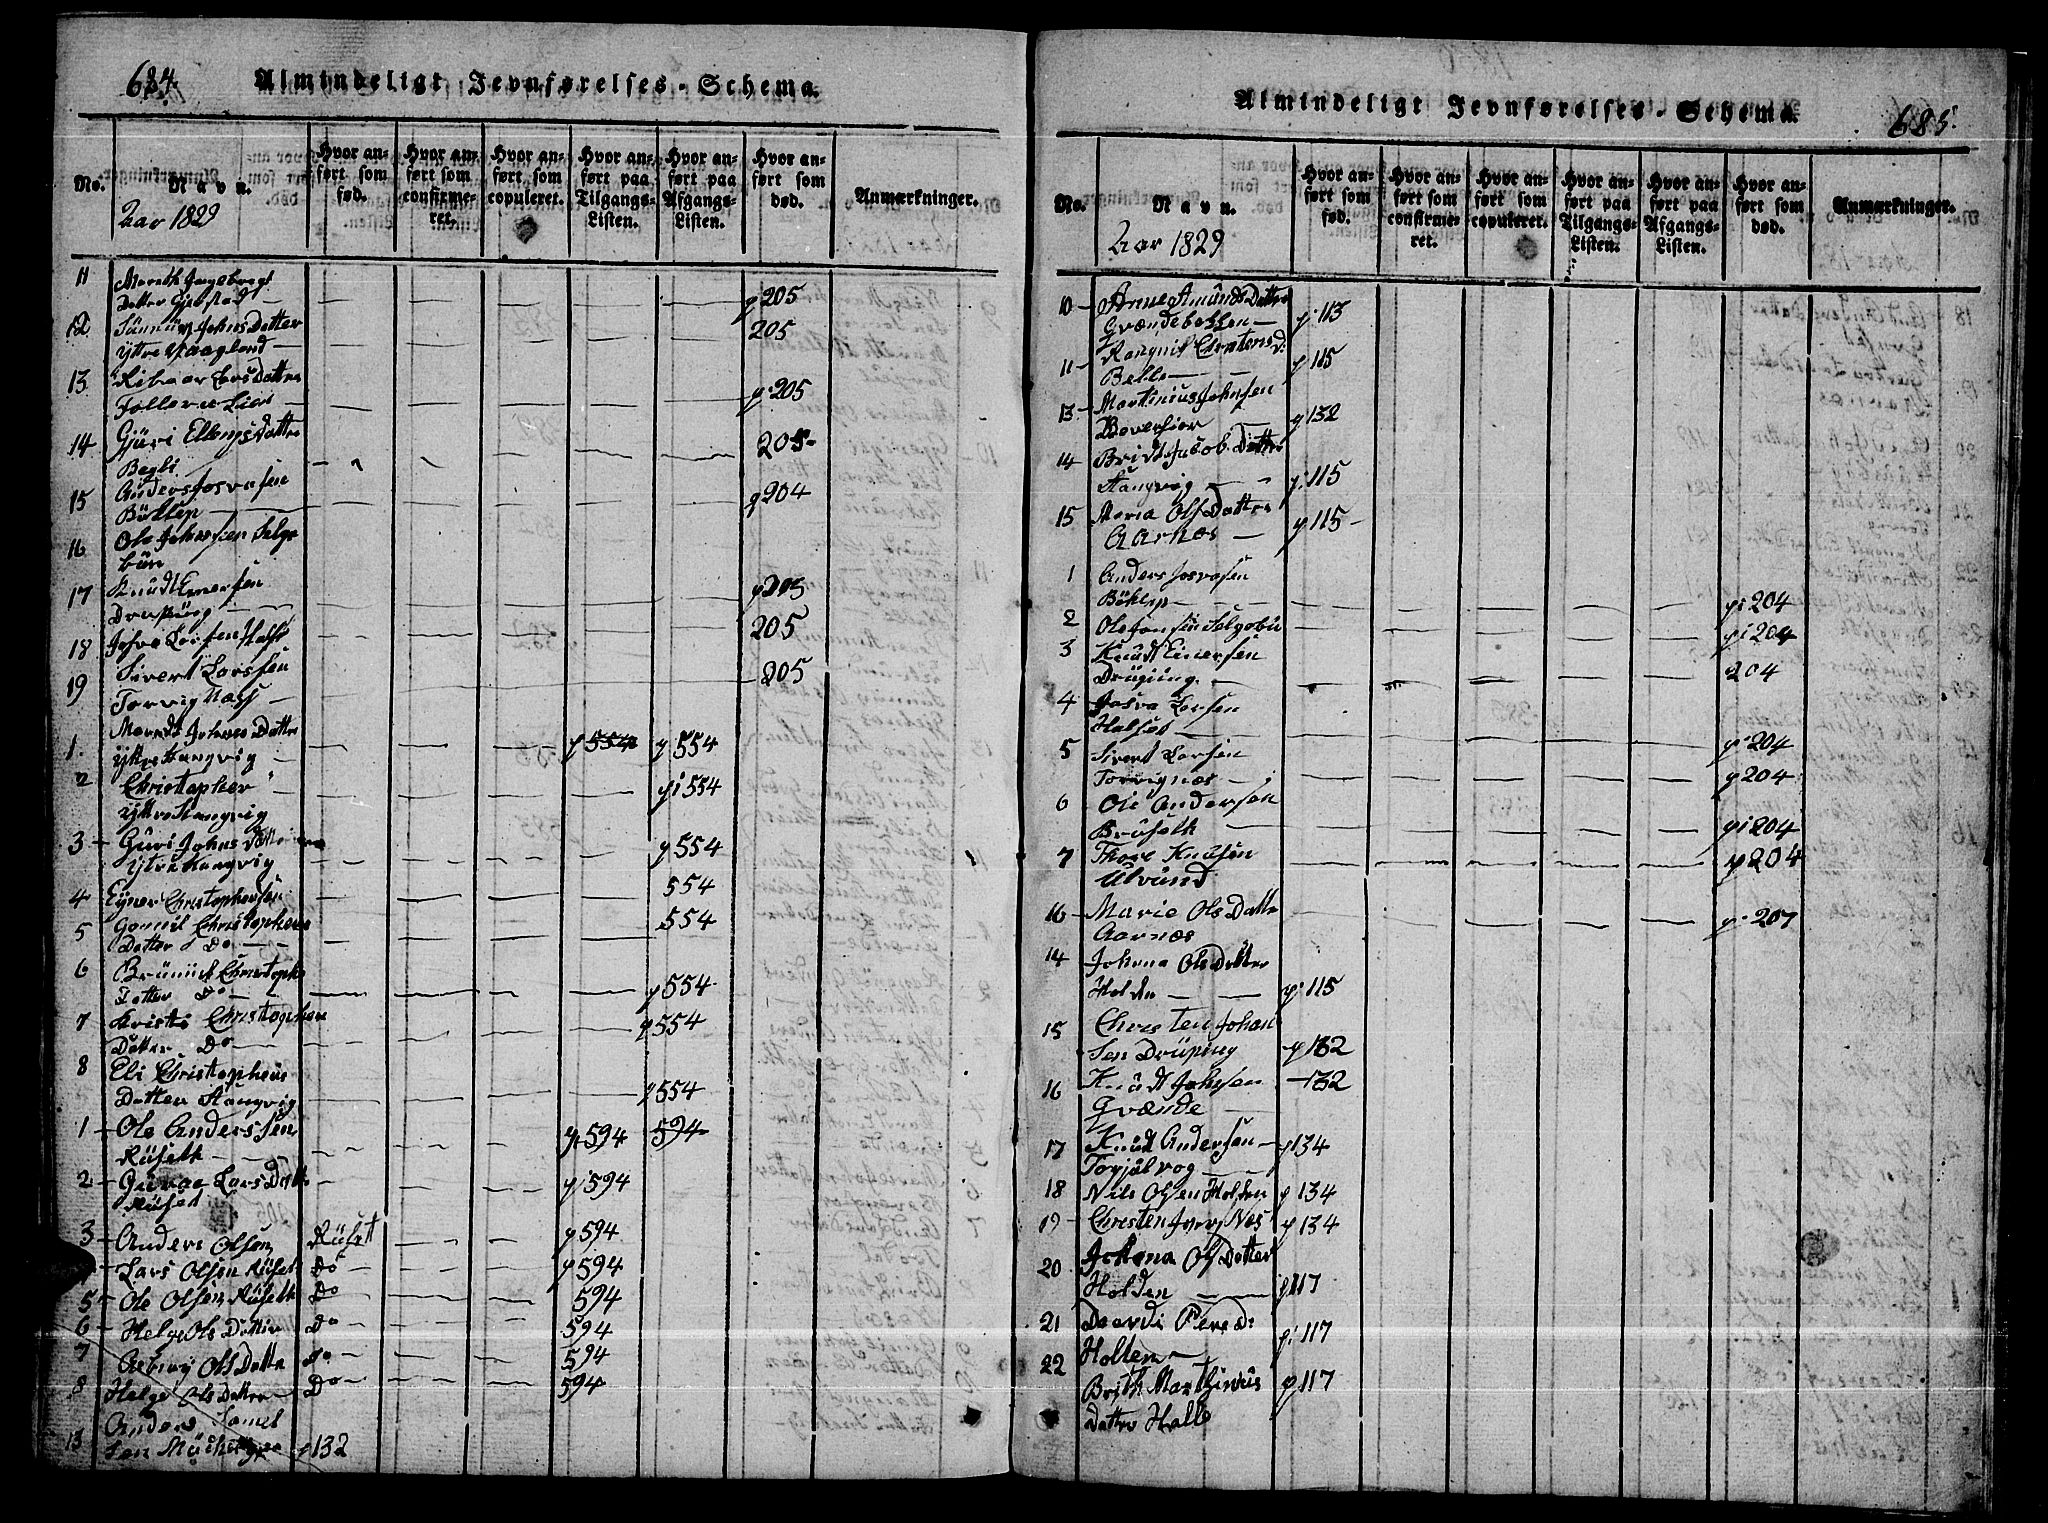 684.
Almindeligt Jevnførelses-Schema.
No.
Navn.
Aar 1829
Hvor anført som fød.
Hvor anført som confirmeret.
Hvor anført som copuleret.
Hvor anført paa Tilgangs-Listen.
Hvor anført paa Afgangs-Listen.
Hvor anført som død.
Anmærkninger.
11 Mareth Ingebregt
Datter Gjerstad — p 205
12 Johns Datter
Yttre Vaagland — 205
13 Lars Datter
p. 205
14 Gjüri Ellengs Datter
Begli 205-
15 Anders Josvasen
Böklip p 204
16 Ole Johnsen Selge
bün
17 Knüdt Einersen
p 205
18 Josva Larsen Halse 205
19 Sivert Larssen
Torvig Nass — 205
1. Johnes Datter
Yttre Stangvig — p 554 p 554
2 Christopher "
Yttre Stangvig p i 554
3 — Guri Johns Datter
Ytre Stangvig p 554
4 Eyner Christophersen 554
5 Gonnil Christophers
Datter Do — 554
6 Brünild Christophe
Datter Do — p 554
7 Kristi Christopher
Datter Do p 554
8 Eli Christophers
Datter Stangvig p 554
1 — Ole Anderssen
Rüseth — p 594 594
2 — Lars Datter
Rüset p 594
3 — Anders Olsen Rüsett p 594
Lars Olsen Rüset Do p 594
5 — Ole Olsen Rüseth Do 594
6 — Helge Ols Datter Do 594
7 Ols Datter Do 594
8 Helge Ols Datter Do 594
Anders
13 sen p 132
685.
Almindeligt Jevnførelses-Schema.
No.
Navn.
Aar 1829
Hvor anført som fød.
Hvor anført som confirmeret.
Hvor anført som copuleret.
Hvor anført paa Tilgangs-Listen.
Hvor anført paa Afgangs-Listen.
Hvor anført som død.
Anmærkninger.
10 — Anne Amünds Datter
Qvændebekken — p 113
11 — Rangnil Christens D:
Belle — p 115
13 — Martinius Johnsen
Boversior p 132
14 Brit Jacob Datter
Stangvig — p. 115
15 Maria Ols Datter
Aarnæs — p 115 —
1 Anders Josvasen
Böklip — p i 204
2 Ole Jonsen Selgebü p i 204
3 Knüdt Einersen
204
4 Josva Larsen
Halset — p 204
5 Sivert Larsen
Torvignæs — p 204
6 — Ole Andersen
Brüseth — p i 204
7 Thore Knüdsen
Ulvünd p 204
16 — Marie Ols Datter
Aarnæs p. 207
14 Johena Ols Datter
Holden — p. 115
15 Christen Johan
sen Drüping p 132
16 Knüdt Johnsen — 132
Qvænde
17 — Knüdt Andersen — p 134
18 Nils Olsen Holden p 134
19 — Christen Ivers Nes p 134
20 Johena Ols Datter
Holden — p 117
21 Daardi Peers D:
Holten — p. 117
22 Brith Marthinus
Datter Halle p 117